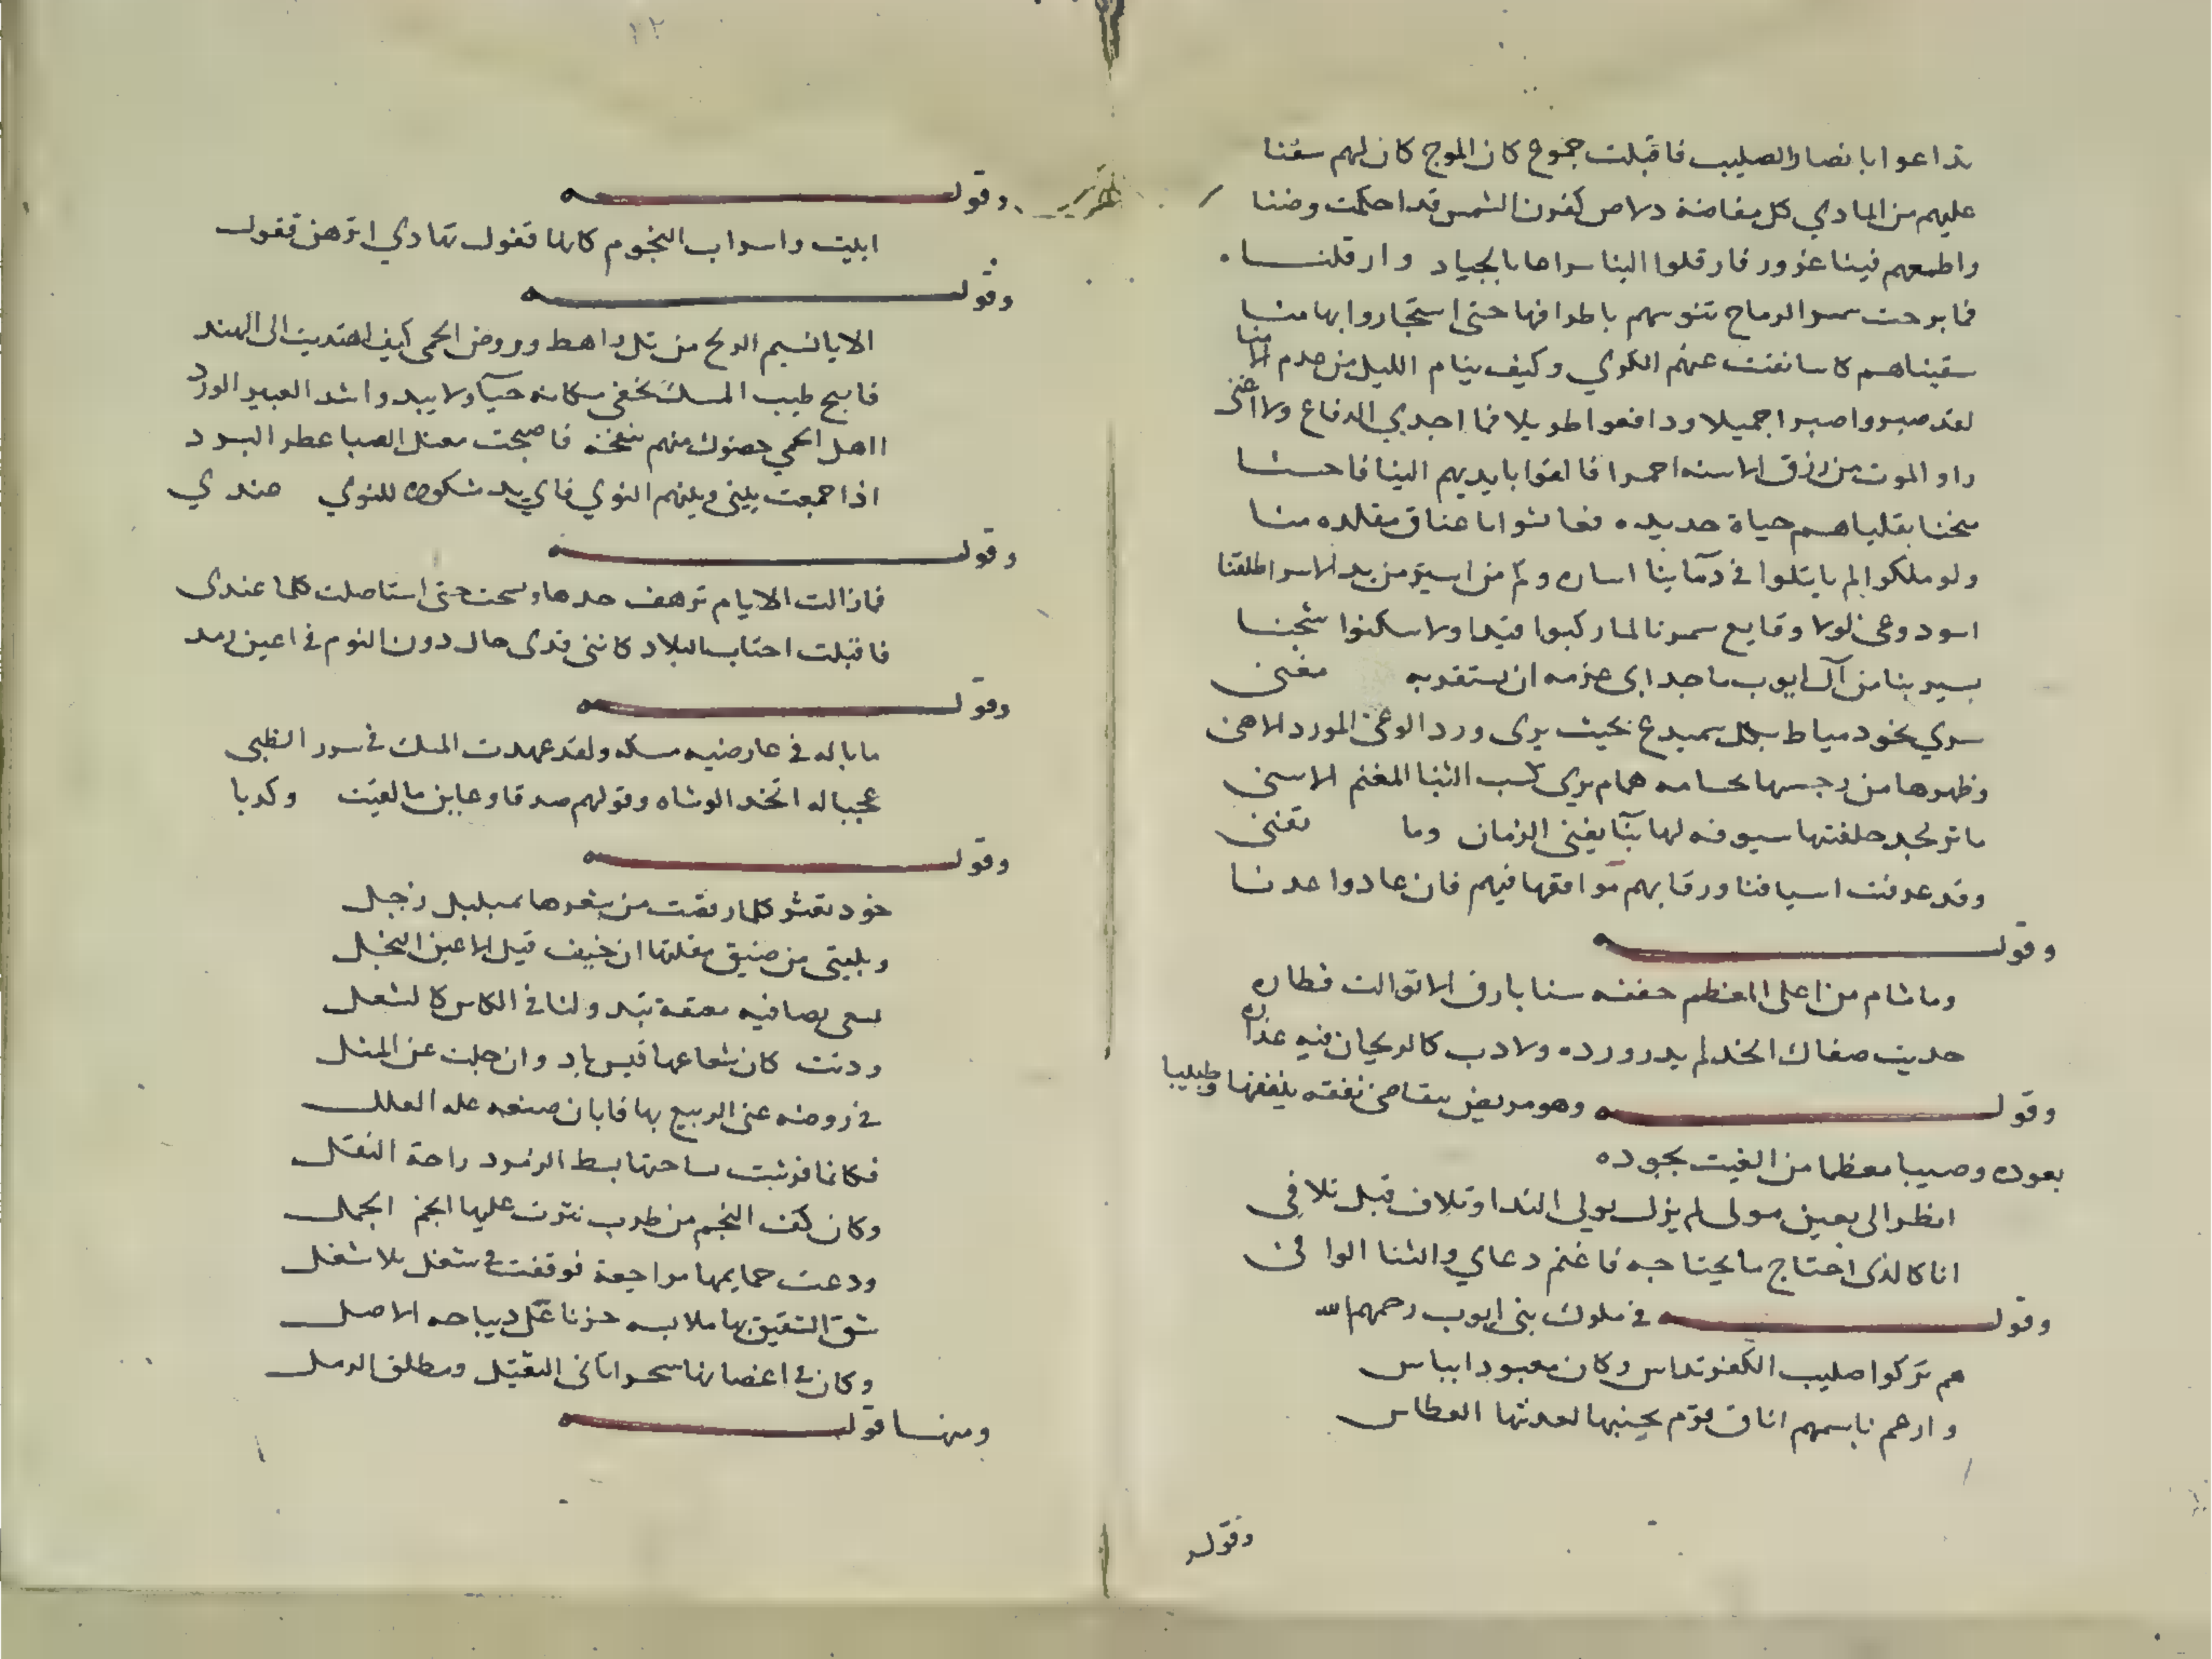 تداعوا بانصار الصليب فاقبلت جموع كان الموج كان لهم سفنا
عليهم من المادي كل مفاضة دلاص كقرن الشمس قد احكمت وضنا
واطمعهم فينا غرور فارقلوا الينا سراعا بالجياد وارقلنا
فما برحت سمر الرماح تنوشهم باطرافها حتى استجاروا بها منا
سقيناهم كاسا نفت عنهم الكري وكيف ينام الليل من عدم الامنا
لقد صبروا صبرا جميلا ودافعوا طويلا فما اجدي الدفاع ولا اغنى
راو الموت من زرق الاسنه احمرا فالقوا بايديهم الينا فاحسنا
منحنا بقاياهم حياة جديده فعاشوا باعناق مقلده منا
ولو ملكوا لم ياتلوا في دمآينا اساره وثم من اسير من يد الاسر اطلقنا
اسود وغى لولا وقايع سمرنا لما ركبوا قيدا ولا سكنوا سجنا
يسير بنا من آل ايوب ماجد ابى عزمه ان يستقر به مغنى
سري نحو دمياط بكل سميدع بحيث يرى ورد الوغى المورد الاهنى
وطهرها من رجسها بحسامه همام يري كسب الثنا المغنم الاسنى
ماثر مجد خلفتها سيوفه لها نبآ يفنى الزمان وما تفنى
وقد عرفت اسيافنا ورقابهم مواقعها فيهم فان عادوا عدنا
وقوله
وما شام من اعلى المعظم جفنه سنا بارق الا توالت قطاره
حديث صفاك الخد لم يدر ورده ولا دب كالريحان فيه عذاره
وقوله وهو مريض يتقاضى نفقه ينفقها وطبيبا
يعوده وصيبا معظما من الغيث بجوده
انظر الى بعين مولى لم يزل يولي الندا وتلاف قبل تلافى
انا كالذى احتاج ما يحتاجه فاغنم دعاي والثنا الوافى
وقوله في ملوك بنى ايوب رحمهم الله
هم تركوا صليب الكفر تداس وكان معبودا يباس
وارهم باسمهم اناف قوم بجنبها العطاس
وقوله
١٢
وقوله
ابليت واسراب النجوم كانها قفول تهادي اثرهن قفول
وقوله
الا يا نسيم الريح من تل راهط وروض الحمى كيف اهتديت الى الهند
فابح طيب المسك يخفى مكانه حيآ ولا يبدو اشد العبير الورد
ااهل الحمي حضنوك منهم بنفحة فاصبحت معتل الصبا عطر البرد
اذا جمعت بيني وبينهم النوي فاي يد مشكوره للنوي عندي
وقوله
فما زالت الايام ترهف حدها وتسحت حتى استاصلت كلما عندى
فاقبلت اجتاب البلاد كاننى قدى حال دون النوم في اعين رمد
وقوله
ما باله في عارضيه مسكه ولقد عهدت المسك في سرر الظبى
عجبا له اتخذ الوشاه وقولهم صدقا وعاين ما لقيت وكدبا
وقوله
خود تغشو كلما رمقت من شعرها بمبلبل رجل
وبليتى من ضيق مقلتها ان خيف قيل الاعين النجل
يسعى بصافيه معتقة تبدو لنا في الكاس كالشعل
ودنت كان شعاعها قبس باد وان جلت عن المثل
في روضه غنى الربيع بها فابان صنعه علة العلل
فكانما فرشت ساحتها بسط الزمرد راحة النفل
وكان كف النجم من طرب نثرت عليها انجم الحمل
ودعت حمايمها مراجعة فوقفت في شغل بلا شغل
شق الشقيق بها ملابسه حزنا على ديباجه الاصل
وكان في اغصانها سحرا ثانى الثقيل ومطلق الرمل
ومنها قوله